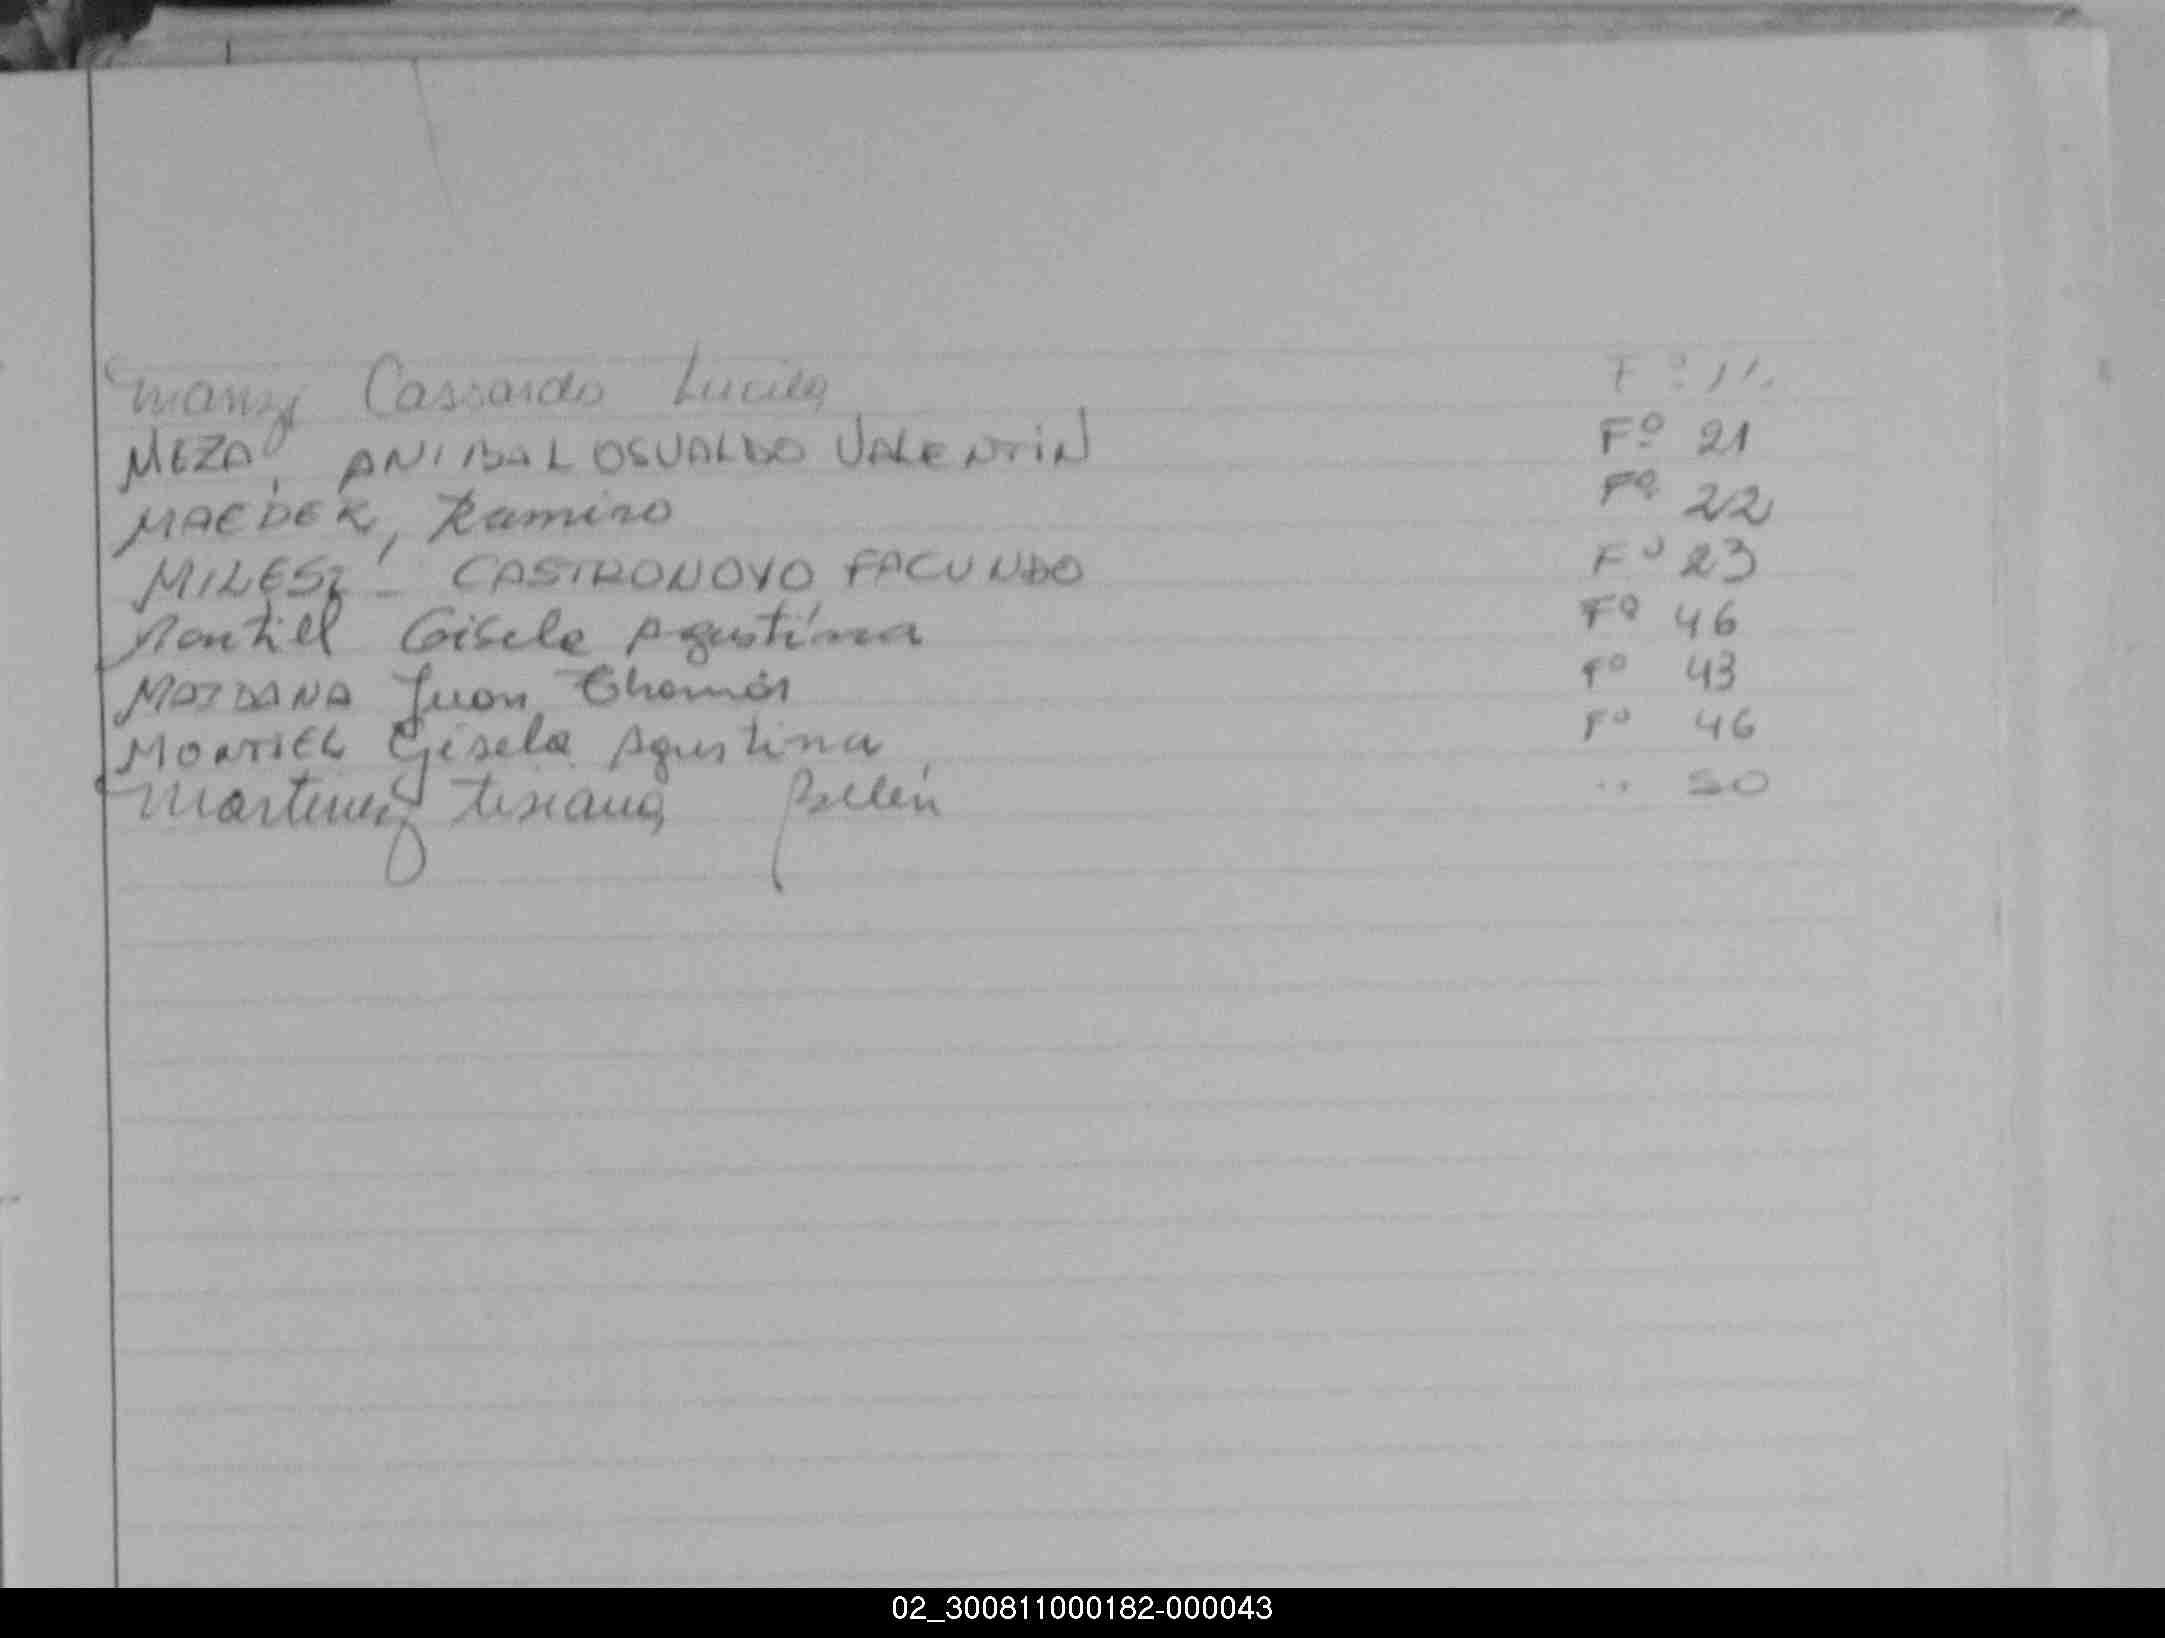 Cassardo Lucila Fº 11
MEZA, ANIBAL OSVALDO VALENTIN Fº 21
MAEDER, Ramiro Fº 22
MILESI - CASTRONOVO FACUNDO Fº 23
Montiel Gisela Agustina Fº 46
MAIDANA Juan Thomás Fº 43
MONTIEL Gisela Agustina Fº 46
Martinez Tiziana Bellén .. 50
02_300811000182-000043